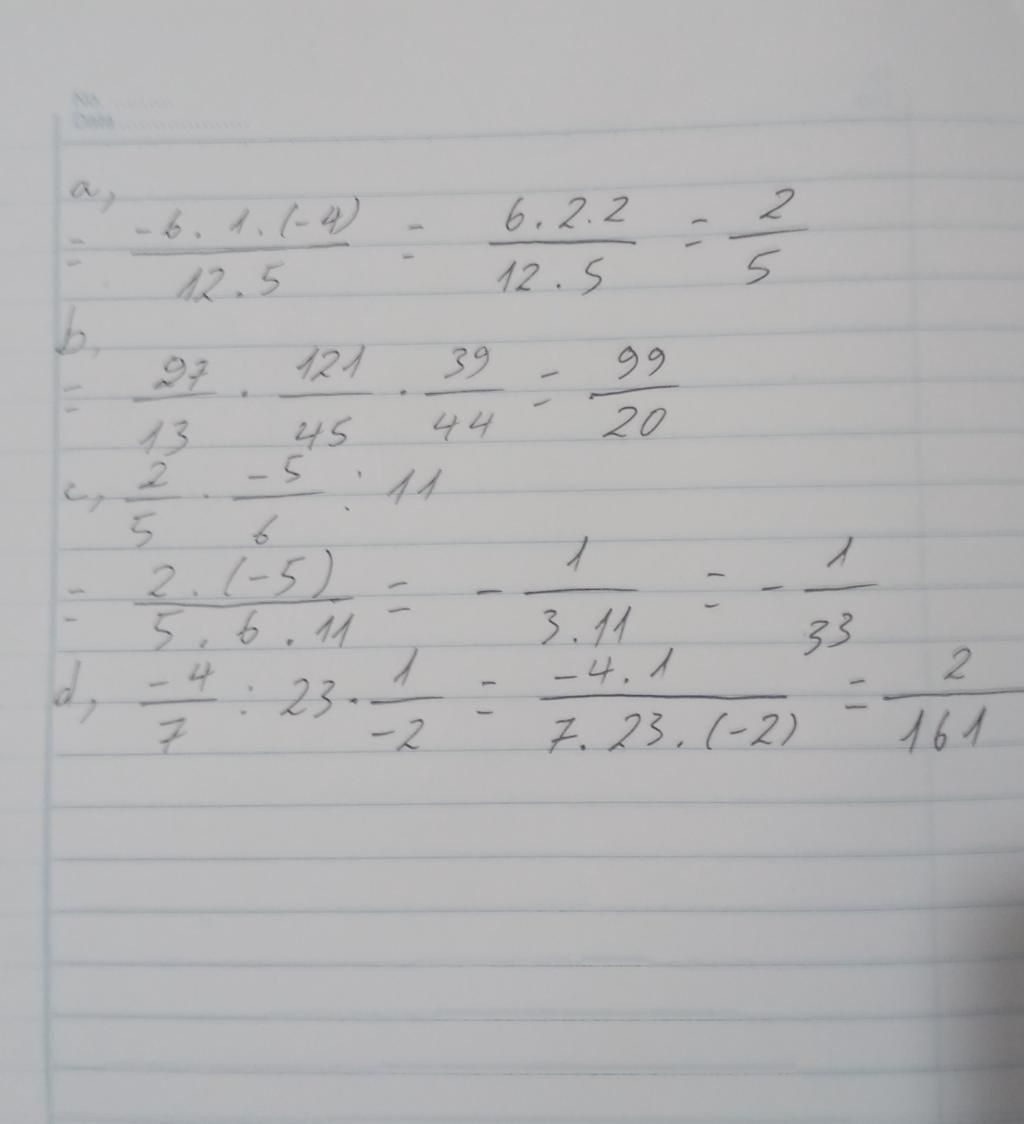 No.
Date
a,
= (-6 . 1 . (-4))/(12 . 5) = (6 . 2 . 2)/(12 . 5) = 2/5
b,
= 27/13 . 121/45 . 39/44 = 99/20
c, 2/5 . -5/6 : 11
= (2 . (-5))/(5 . 6 . 11) = - 1/(3 . 11) = - 1/33
d, -4/7 : 23 . 1/-2 = (-4 . 1)/(7 . 23 . (-2)) = 2/161